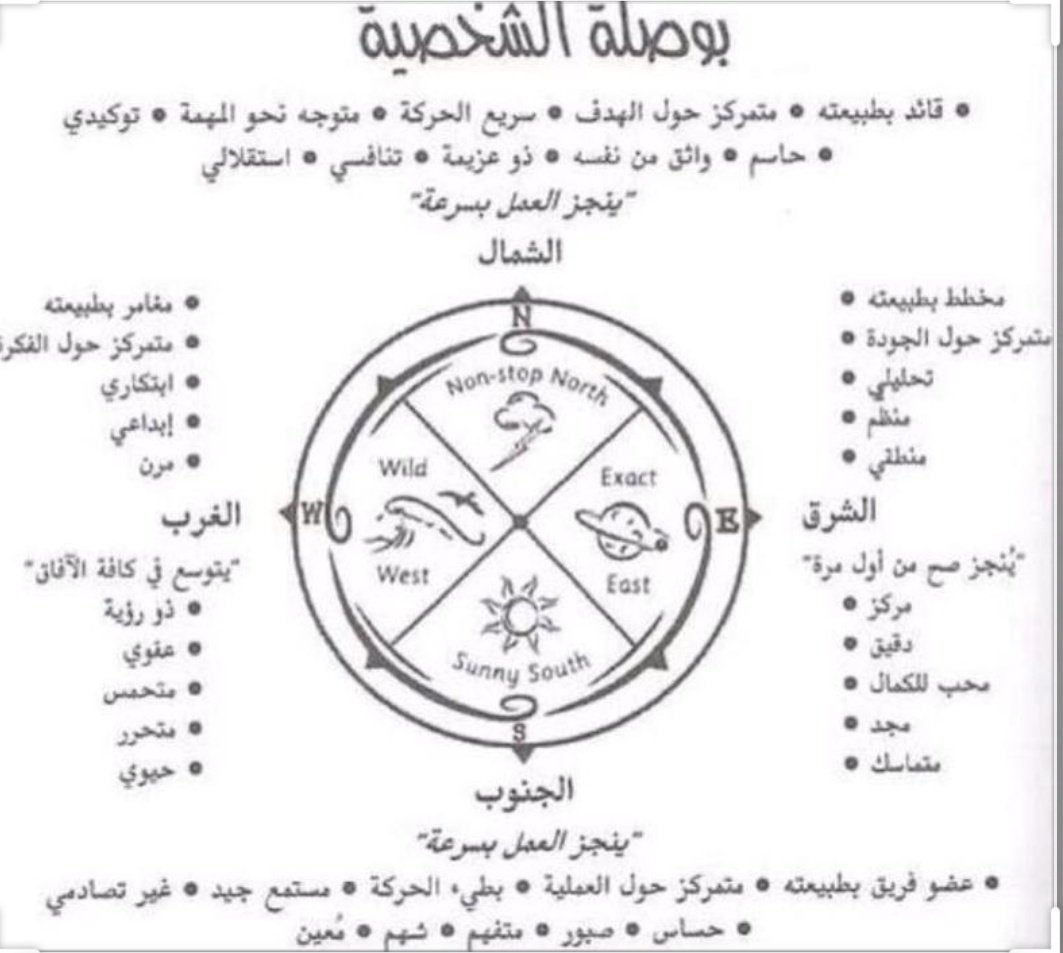 بوصلة الشخصية
• قائد بطبيعته • متمركز حول الهدف • سريع الحركة • متوجه نحو المهمة • توكيدي
• حاسم • واثق من نفسه • ذو عزيمة • تنافسي • استقلالي
"ينجز العمل بسرعة"
الشمال
مخطط بطبيعته •
متمركز حول الجودة •
تحليلي •
منظم •
منطقي •
الشرق
"يُنجز صح من أول مرة"
مركز •
دقيق •
محب للكمال •
مجد •
متماسك •
N
Non-stop North
Exact
East
E
Wild
West
W
Sunny South
S
• مغامر بطبيعته
• متمركز حول الفكرة
• ابتكاري
• إبداعي
• مرن
الغرب
"يتوسع في كافة الآفاق"
• ذو رؤية
• عفوي
• متحمس
• متحرر
• حيوي
الجنوب
"ينجز العمل بسرعة"
• عضو فريق بطبيعته • متمركز حول العملية • بطيء الحركة • مستمع جيد • غير تصادمي
• حساس • صبور • متفهم • شهم • مُعين